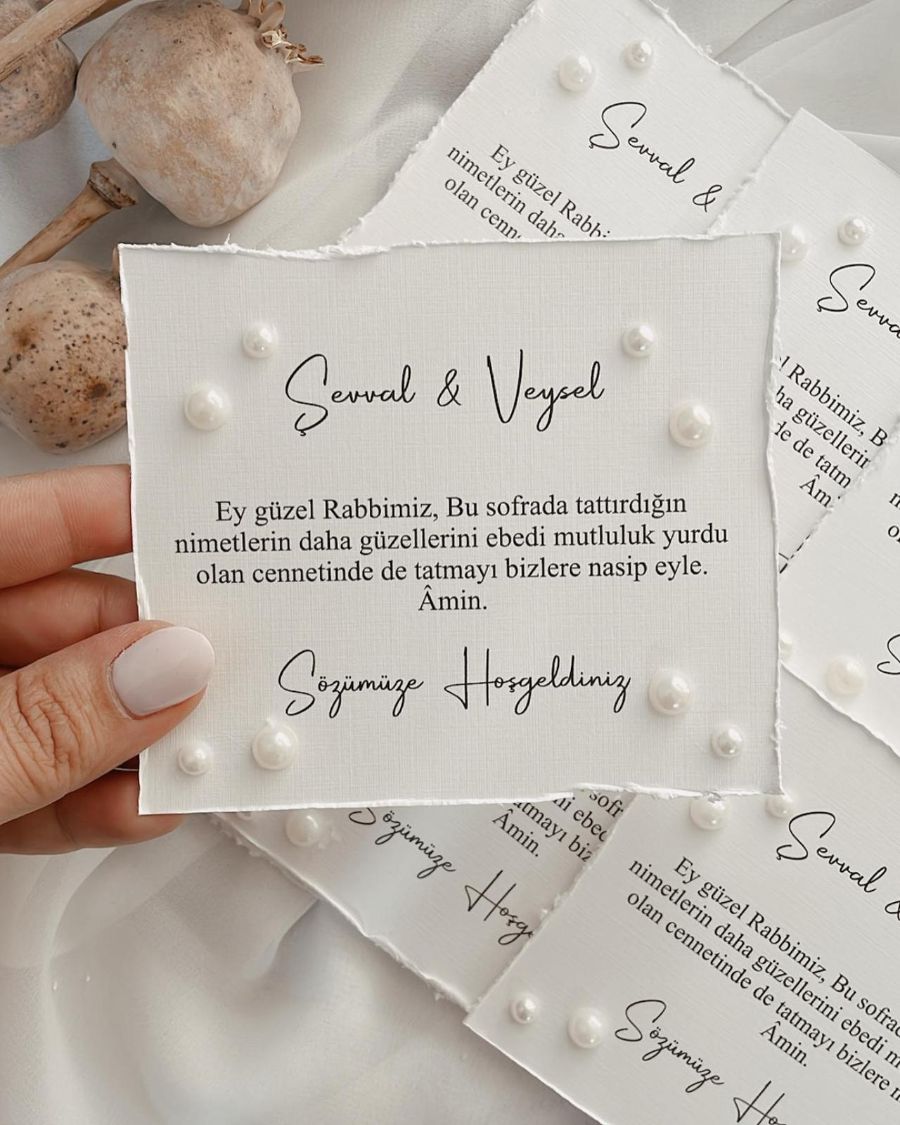 Şevval & Veysel
Ey güzel Rabbimiz, Bu sofrada tattırdığın
nimetlerin daha güzellerini ebedi mutluluk yurdu
olan cennetinde de tatmayı bizlere nasip eyle.
Âmin.
Sözümüze Hoşgeldiniz
Şevval &
Ey güzel
nimetlerin daha
olan
Rabbimiz,
güzellerin
de tatm
Sözümüze
Âmin.
Şevval
Ey güzel Rabbimiz, Bu
nimetlerin daha güzellerini ebedi
olan cennetinde de tatmayı bizlere
Âmin.
Sözümüze